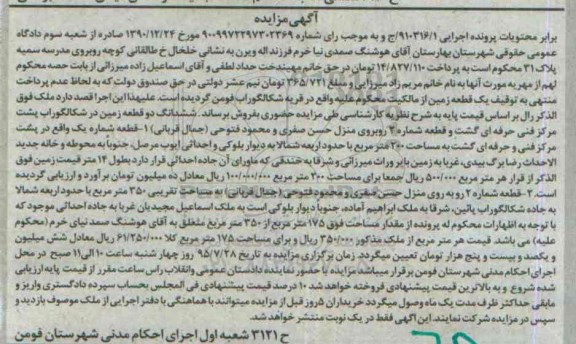 آگهی مزایده
برابر محتویات پرونده اجرایی ۹۱۰۳۱۶/۱/ج و به موجب رای شماره ۹۰۰۹۹۷۲۲۹۷۳۰۲۳۶۹ مورخ ۱۳۹۰/۱۲/۲۴ صادره از شعبه سوم دادگاه
عمومی حقوقی شهرستان بهارستان آقای هوشنگ صمدی نیا خرم فرزند اله ویرن به نشانی خلخال خ طالقانی کوچه روبروی مدرسه سمیه
پلاک ۳۱ محکوم است به پرداخت ۱۴/۸۲۷/۱۱۰ تومان در حق خانم مهیندخت حداد لطفی و آقای اسماعیل زاده میرزائی از بابت حصه محکوم
لهم از مهریه مورث آنها به نام خانم مریم زاد میرزایی و مبلغ ۳۶۵/۷۲۱ تومان نیم عشر دولتی در حق صندوق دولت که به لحاظ عدم پرداخت
منتهی به توقیف یک قطعه زمین از مالکیت محکوم علیه واقع در قریه شکالگوراب فومن گردیده است. علیهذا این اجرا قصد دارد ملک فوق
الذکر رال بر اساس قیمت پایه به شرح نظریه کارشناسی طی مزایده حضوری بفروش برساند. ششدانگ دو قطعه زمین در شکالگوراب پشت
مرکز فنی حرفه ای گشت و قطعه شماره ۲ روبروی منزل حسن صفری و محمود فتوحی (جمال قربانی) ۱-قطعه شماره یک واقع در پشت
مرکز فنی و حرفه ای گشت به مساحت ۲۰۰ متر مربع با حدود اربعه شمالا به دیوار بلوکی و احداثی ایوب مرصل، جنوباً به محوطه و خانه جدید
الاحداث رضا برگ بیدی، غربا به زمین بایر وراث میرزائی و شرقا به خندقی که ماورای آن جاده احداثی قرار دارد بطول ۱۴ متر قیمت زمین فوق
الذکر از قرار هر متر مربع ۵۰۰/۰۰۰ ریال جمعا برای مساحت ۲۰۰ متر مربع ۱۰۰/۰۰۰/۰۰۰ ریال معادل ده میلیون تومان برآورد و ارزیابی گردیده
است. ۲-قطعه شماره ۲ رو به روی منزل حسن صفری و محمود فتوحی (جمال قربانی) به مساحت تقریبی ۳۵۰ متر مربع با حدود اربعه شمالا
به جاده شکالگوراب پائین، شرقا به ملک ابراهیم آماده، جنوبا دیوار بلوکی است به ملک اسماعیل مجیدیان غربا به جاده احداثی موجود که
با توجه به اظهارات محکوم له پرونده از مقدار مساحت فوق ۱۷۵ متر مربع از ۳۵۰ متر مربع متعلق به آقای هوشنگ صمد نیای خرم (محکوم
علیه) می باشد. قیمت هر متر مربع از ملک مذکور ۳۵۰/۰۰۰ ریال و برای مساحت ۱۷۵ متر مربع کلا ۶۱/۲۵۰/۰۰۰ ریال معادل شش میلیون
و یکصد و بیست و پنج هزار تومان تعیین میگردد. زمان برگزاری مزایده به تاریخ ۹۵/۷/۲۸ روز چهار شنبه ساعت ۱۰ الی ۱۱ صبح در محل
اجرای احکام مدنی شهرستان فومن برقرار میباشد مزایده با حضور نماینده دادستان عمومی وانقلاب راس ساعت مقرر از قیمت پایه ارزیابی
شده شروع و به بالاترین قیمت پیشنهادی فروخته خواهد شد ۱۰ درصد قیمت پیشنهادی فی المجلس بحساب سپرده دادگستری واریز و
مابقی حداکثر ظرف مدت یک ماه وصول میگردد خریداران ۵روز قبل از مزایده میتوانند با هماهنگی با دفتر اجرایی از ملک موصوف بازدید و
سپس در مزایده شرکت نمایند. این آگهی فقط در یک نوبت منتشر خواهد شد.
ح ۳۱۲۱ شعبه اول اجرای احکام مدنی شهرستان فومن